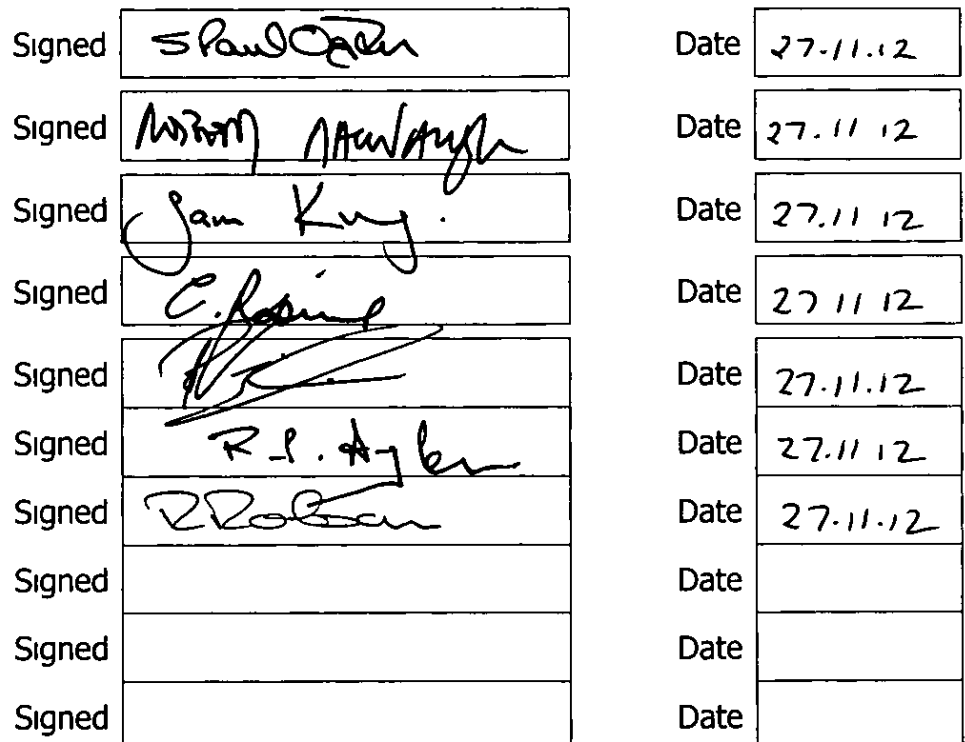 Signed S Paul Ogden Date 27.11.12
Signed Date 27.11 12
Signed Sam King. Date 27.11 12
Signed C. Date 27 11 12
Signed Date 27.11.12
Signed R.P. Date 27.11 12
Signed R Robson Date 27.11.12
Signed Date
Signed Date
Signed Date